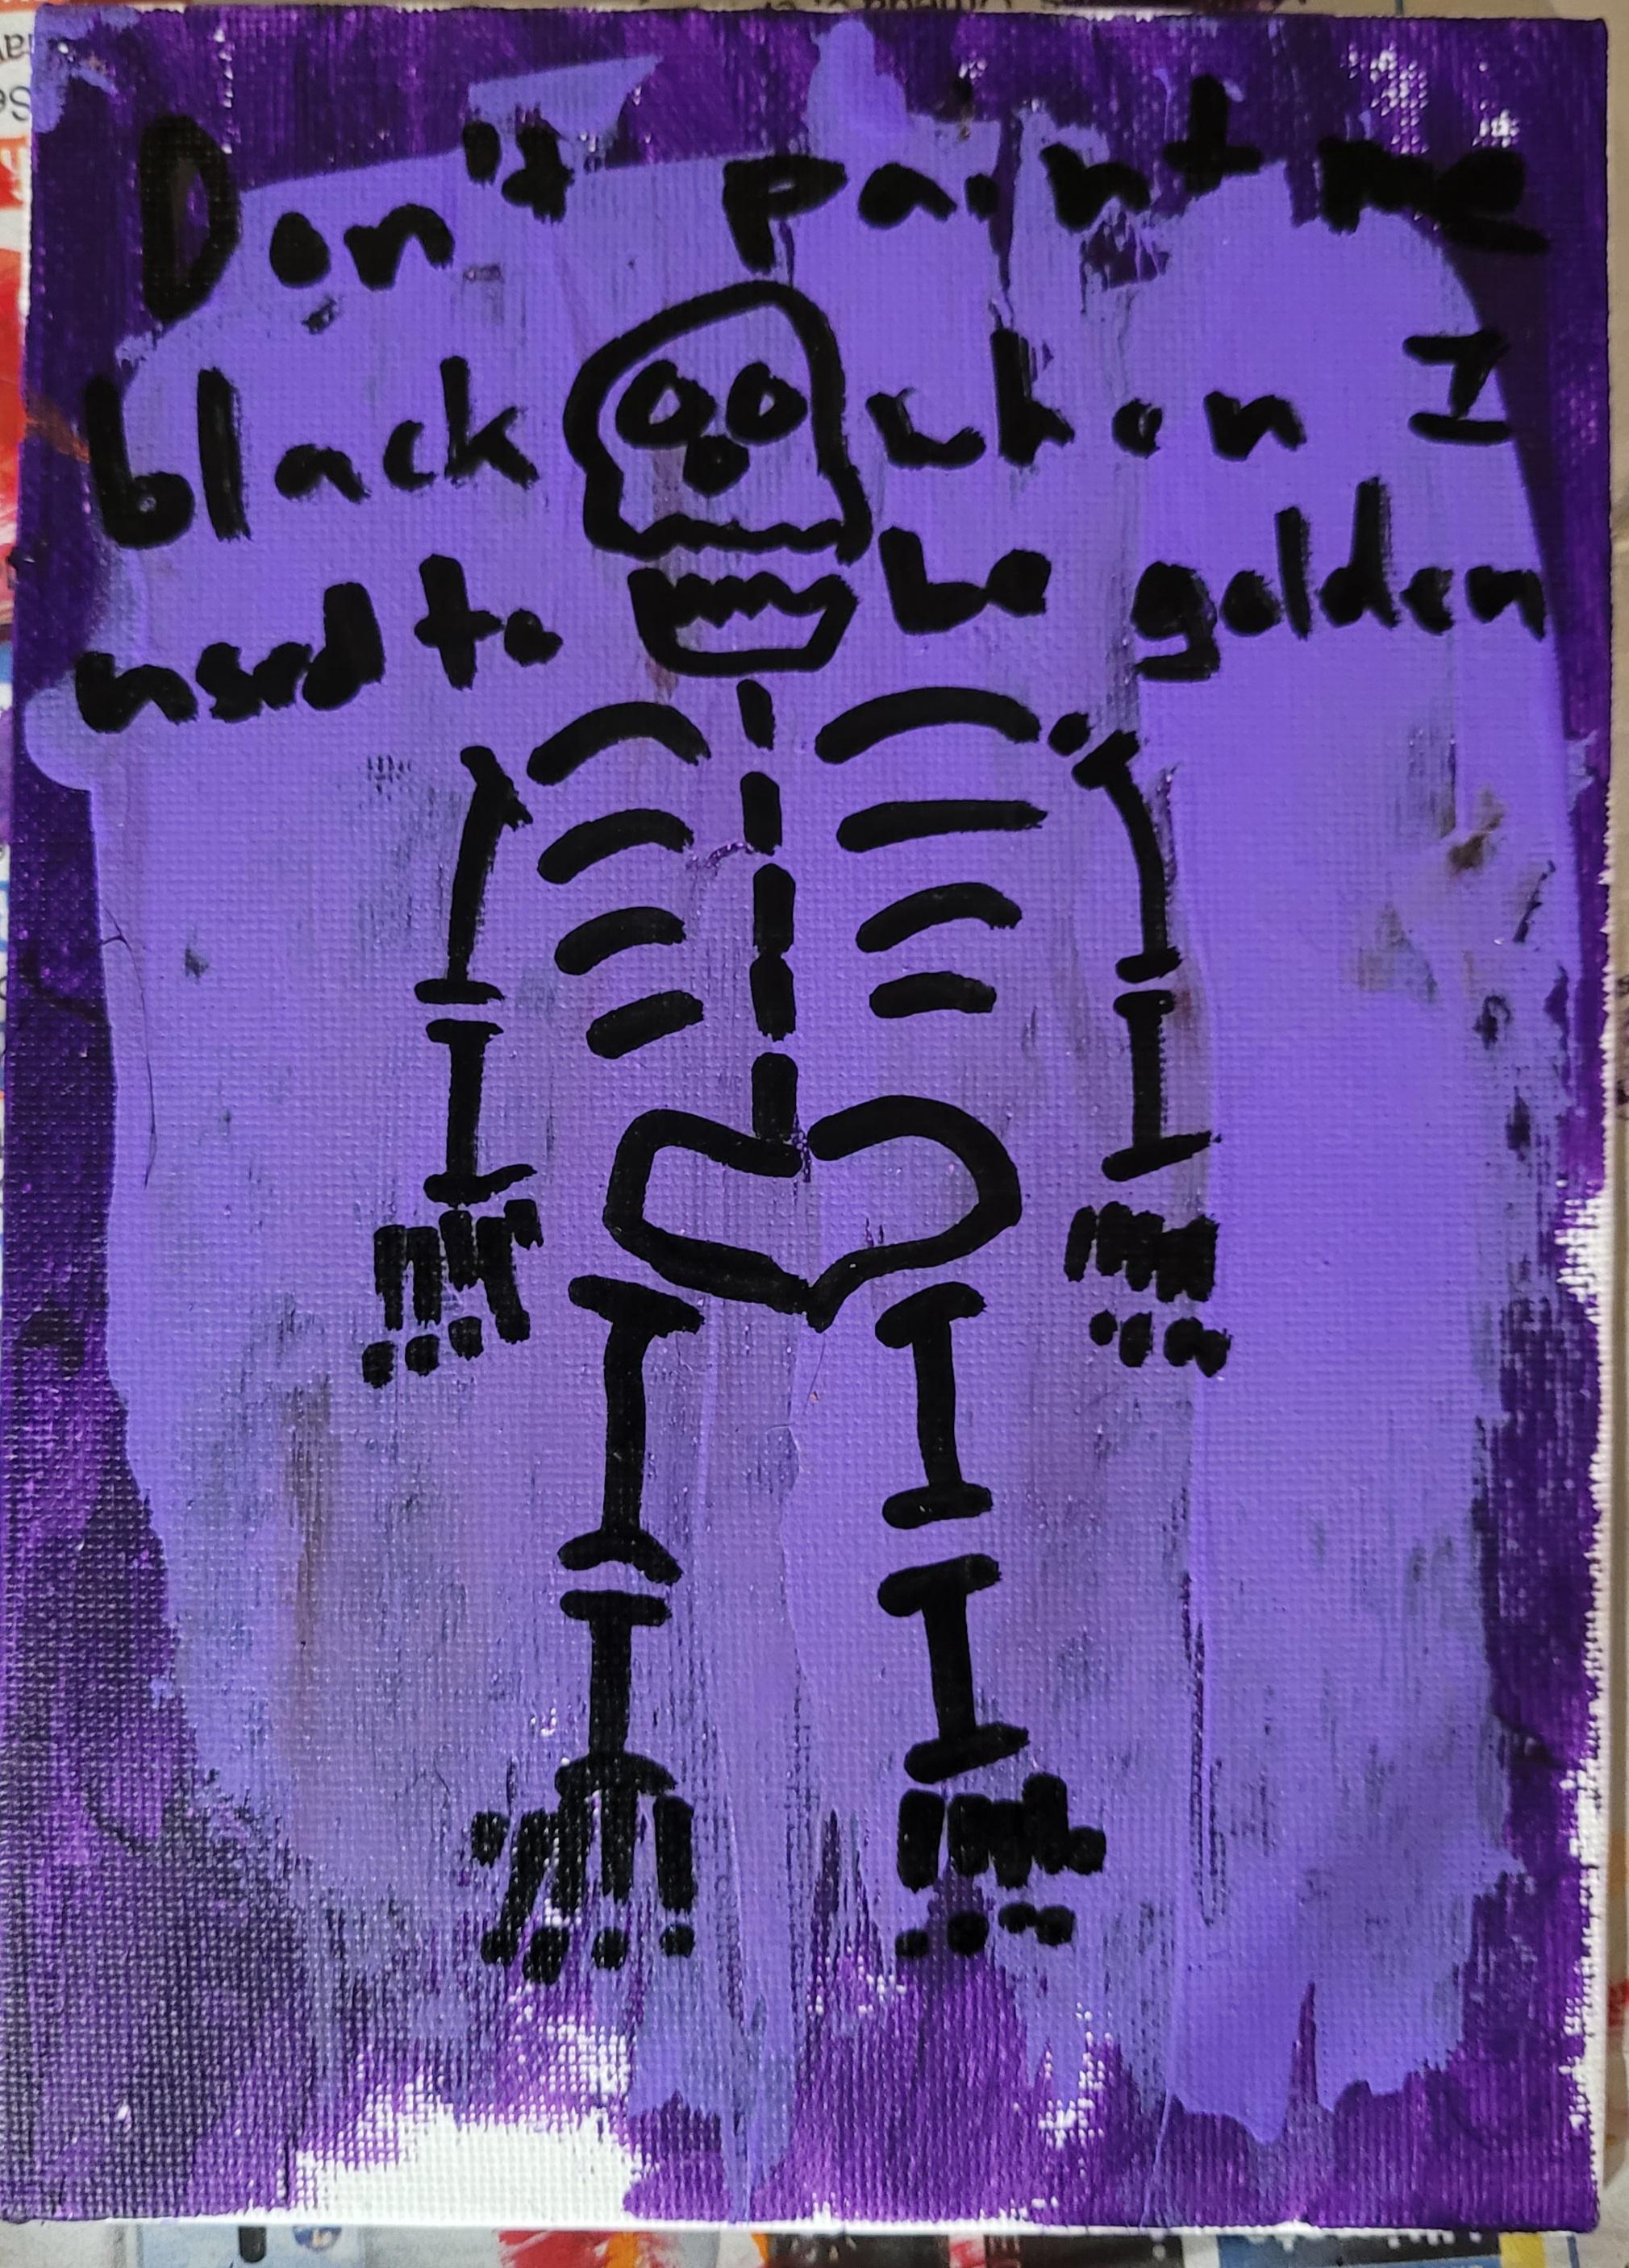 Don't paint me
black when I
used to be golden